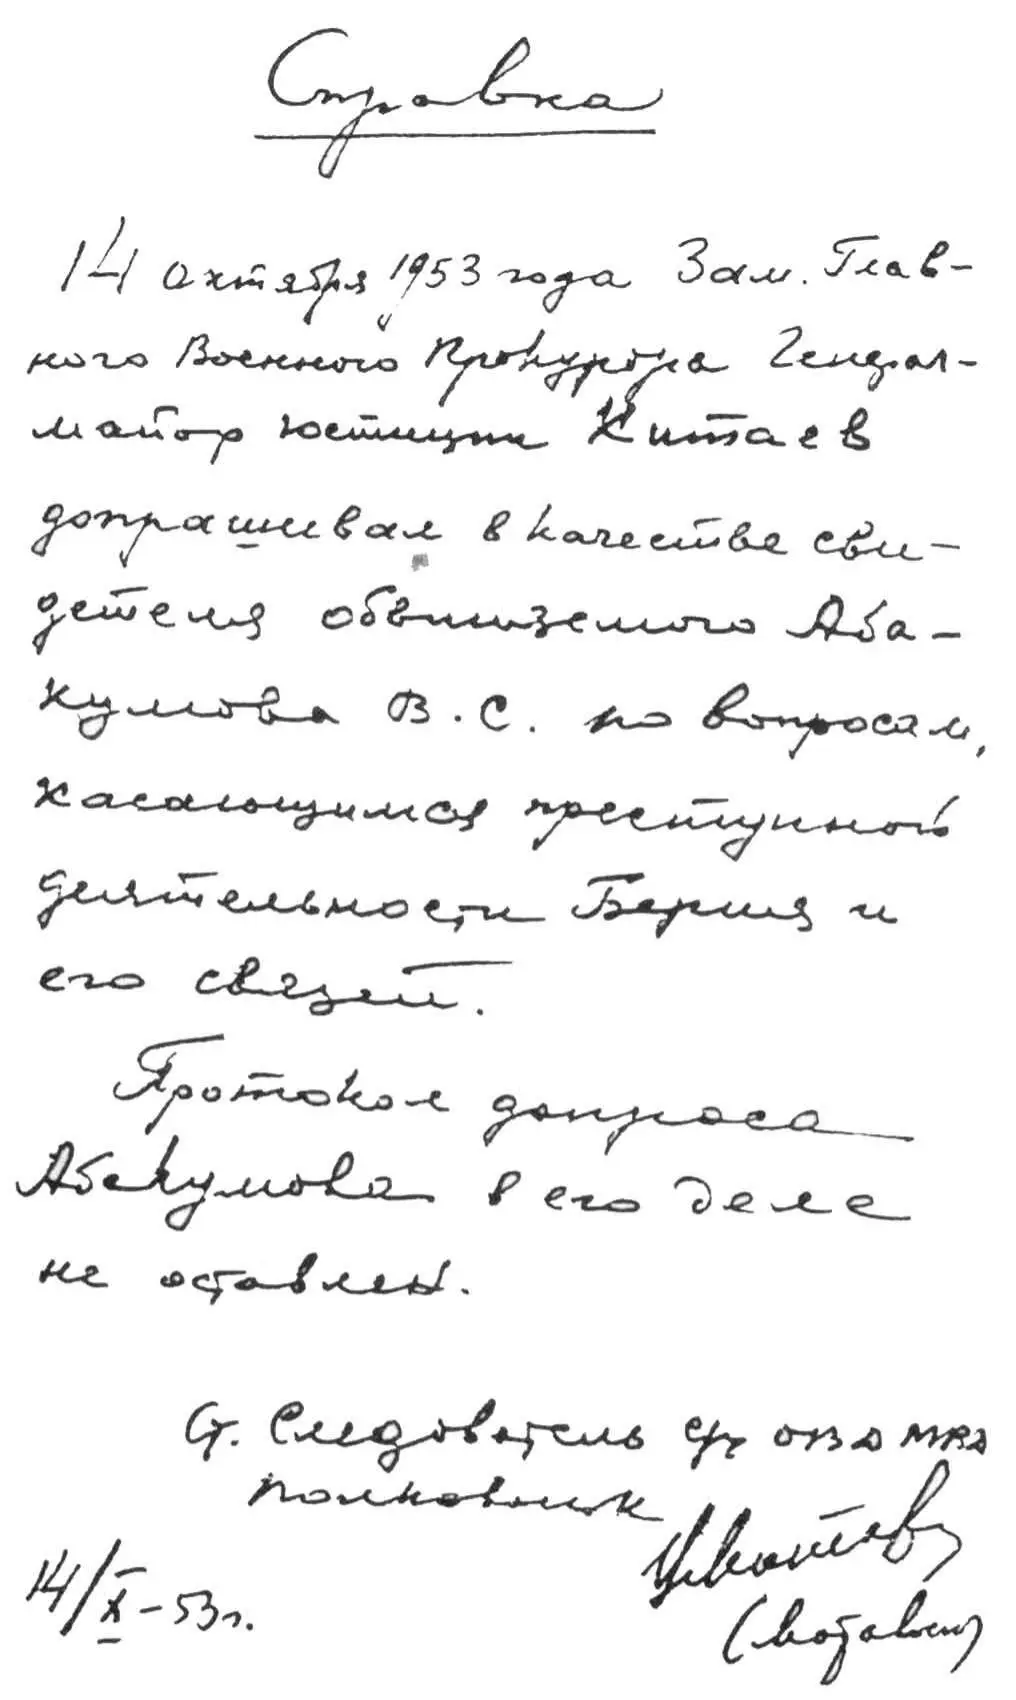 Справка
14 октября 1953 года Зам. Глав-
ного Военного Прокурора Генерал-
майор юстиции Китаев
допрашивал в качестве сви-
детеля обвиняемого Аба-
кумова В.С. по вопросам,
касающимся преступной
деятельности Берия и
его связей.
Протокол допроса
Абакумова в его деле
не оставлен.
Ст. Следователь
полковник
14/X-53г.